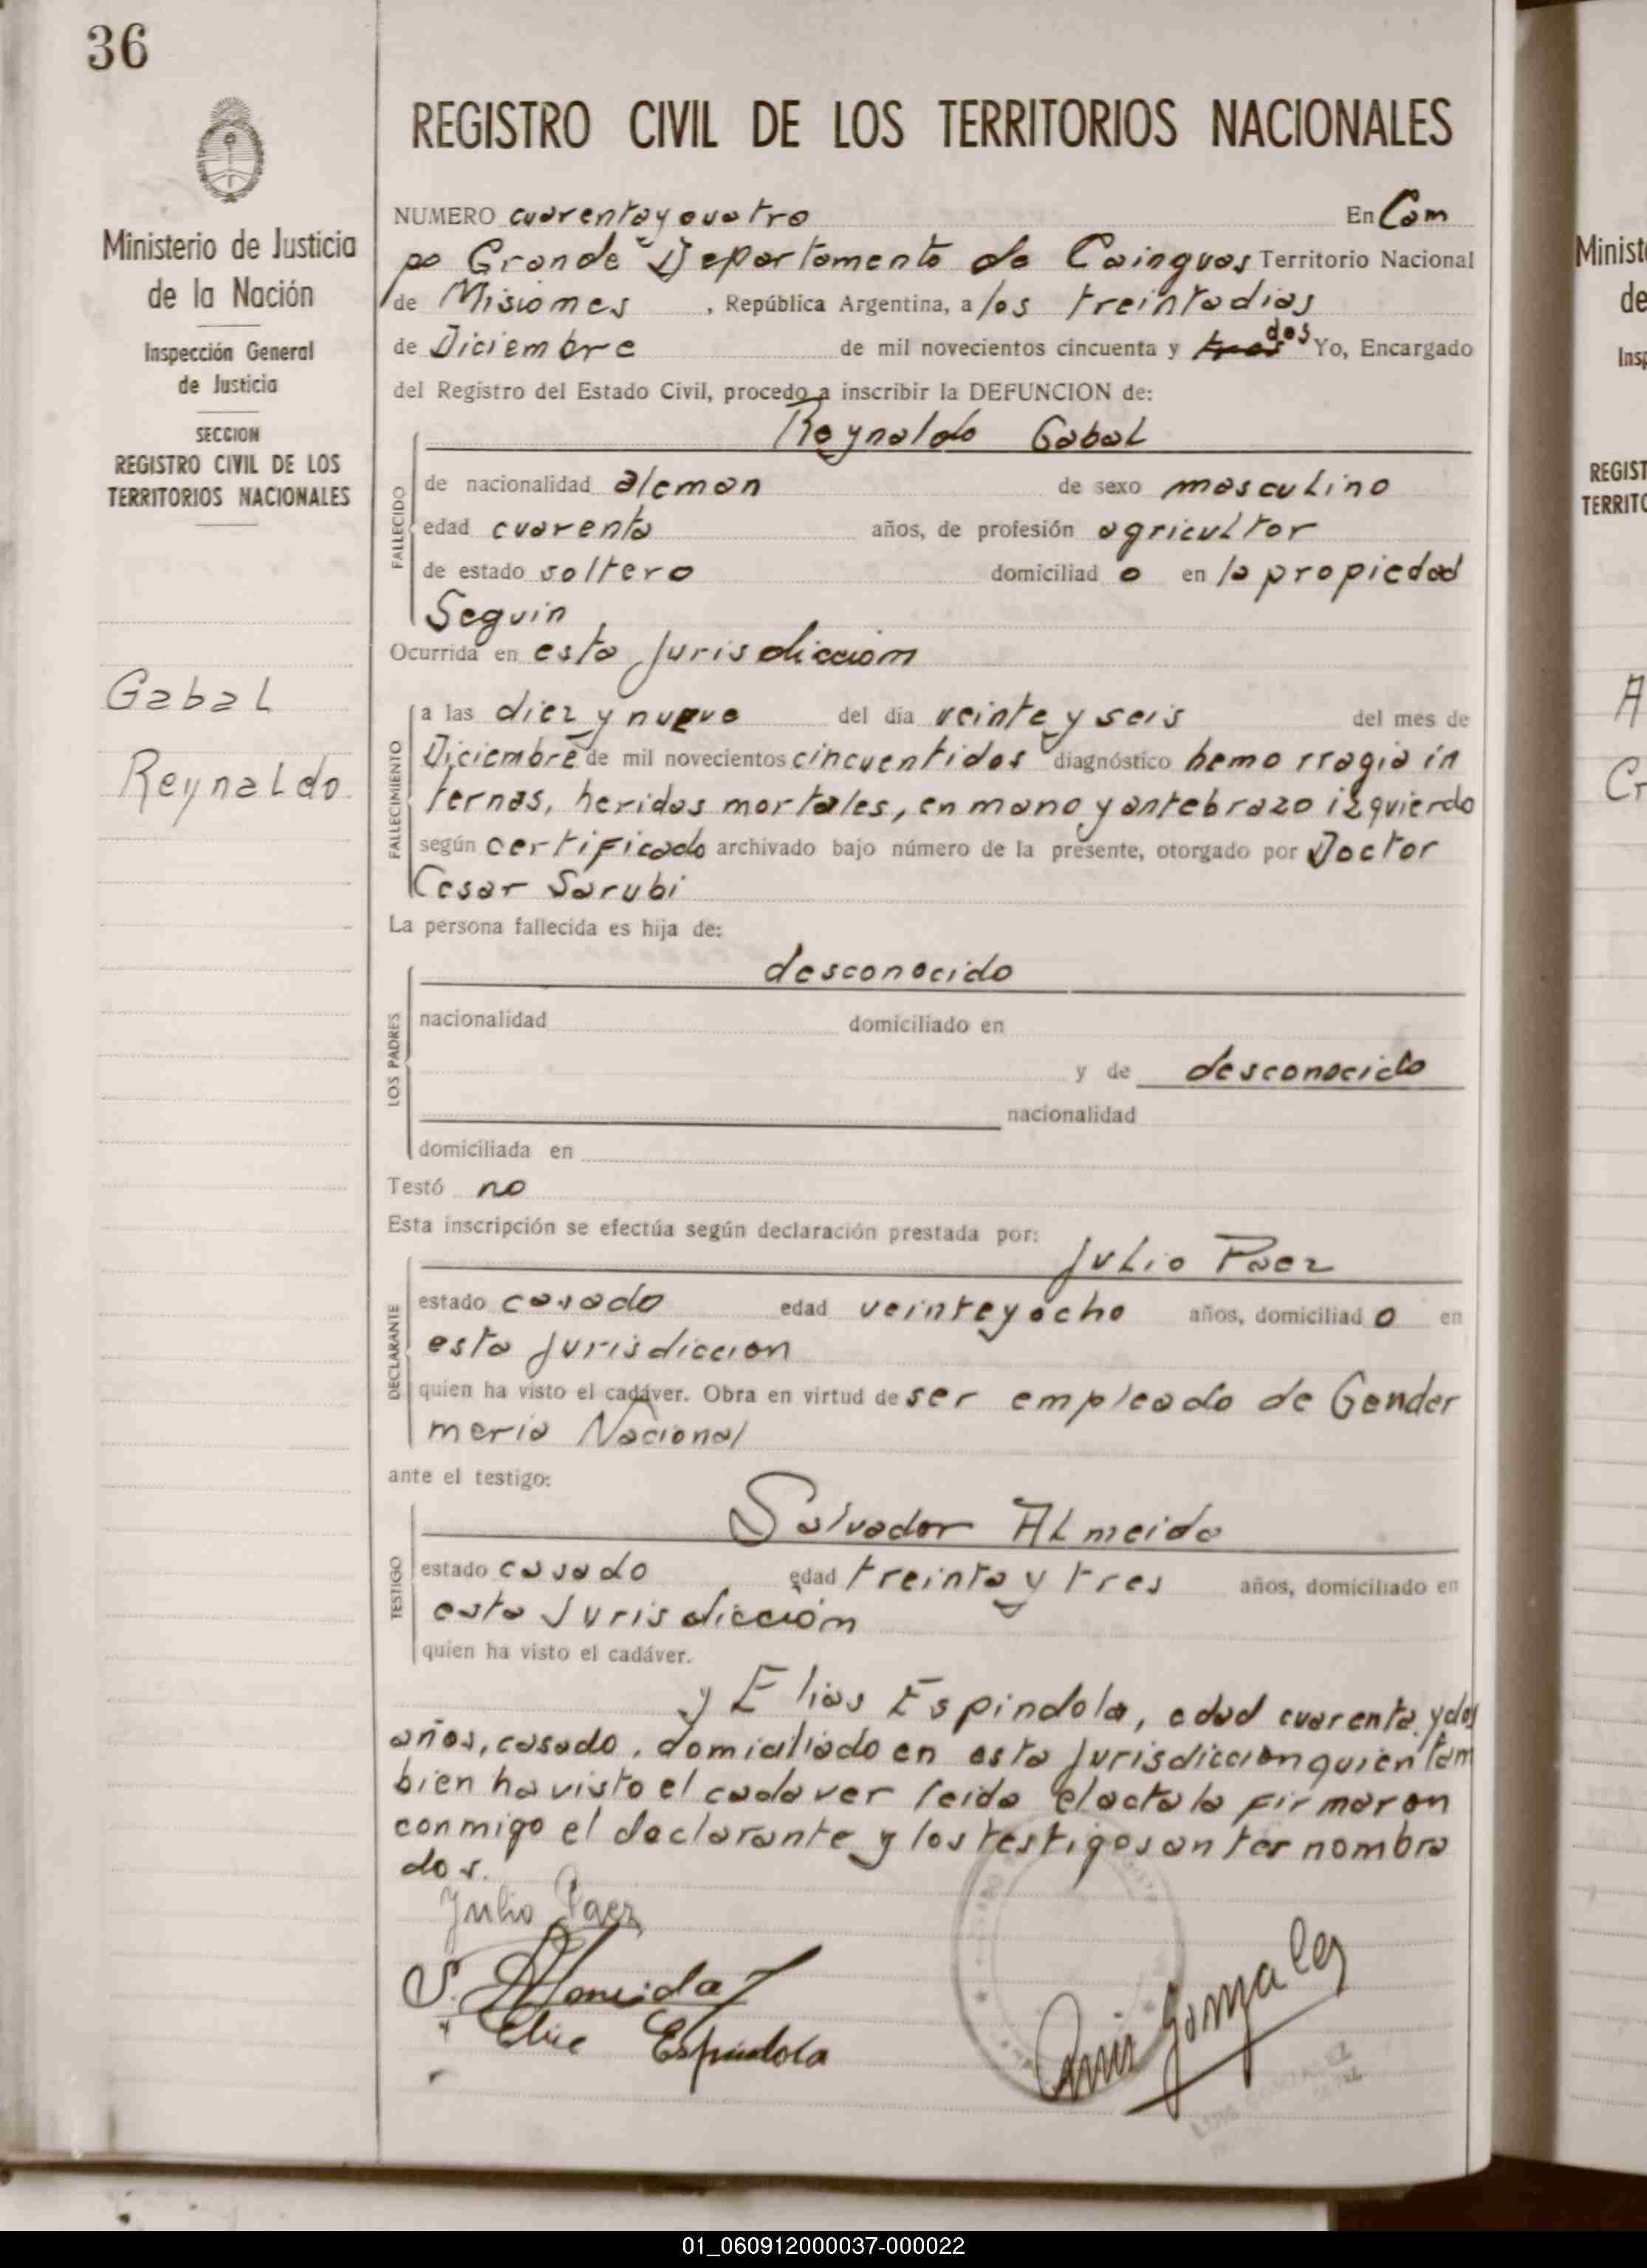 36
Ministerio de Justicia
de la Nación
Inspección General
de Justicia
SECCION
REGISTRO CIVIL DE LOS
TERRITORIOS NACIONALES
Gabal
Reynaldo
REGISTRO CIVIL DE LOS TERRITORIOS NACIONALES
NUMERO cuarenta y cuatro En Cam
po Grande Departamento de Cainguas Territorio Nacional
de Misiones , República Argentina, a los treinta dias
de Diciembre de mil novecientos cincuenta y tres dos Yo, Encargado
del Registro del Estado Civil, procedo a inscribir la DEFUNCION de:
Reynaldo Gabal
FALLECIDO
de nacionalidad aleman de sexo masculino
edad cuarenta años, de profesión agricultor
de estado soltero domiciliad o en la propiedad
Seguin
Ocurrida en esta jurisdiccion
FALLECIMIENTO
a las diez y nueve del día veinte y seis del mes de
Diciembre de mil novecientos cincuentidos diagnóstico hemorragia in
ternas, heridas mortales, en mano y antebrazo izquierdo
según certificado archivado bajo número de la presente, otorgado por Doctor
Cesar Sarubi
La persona fallecida es hija de:
desconocido
LOS PADRES
nacionalidad domiciliado en
y de desconocido
nacionalidad
domiciliada en
Testó no
Esta inscripción se efectúa según declaración prestada por:
Julio Paez
DECLARANTE
estado casado edad veinte y ocho años, domiciliad o en
esta jurisdiccion
quien ha visto el cadáver. Obra en virtud de ser empleado de Gender
meria Nacional
ante el testigo:
Salvador Almeida
TESTIGO
estado casado edad treinta y tres años, domiciliado en
esta Jurisdicción
quien ha visto el cadáver.
y Elias Espindola, edad cuarenta y dos
años, casado, domiciliado en esta jurisdiccion quien tam
bien ha visto el cadaver leida el acta la firmaron
conmigo el declarante y los testigos antes nombra
dos.
Julio Paez
S. Almeida
Elias Espindola
Luis Gonzalez
LUIS GONZALEZ
Minist
de
Insp
REGIST
TERRITO
A
01_060912000037-000022